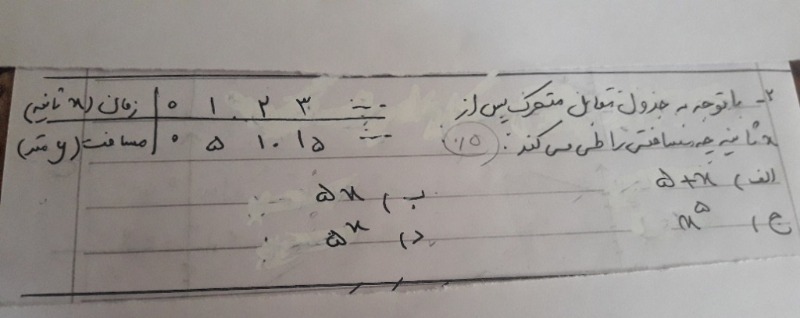 ۲- با توجه به جدول مقابل متحرک پس از
x ثانیه چه مسافتی را طی می کند؟ (۰/۵)
زمان (x ثانیه) ۰ ۱ ۲ ۳ ...
مسافت (y متر) ۰ ۵ ۱۰ ۱۵ ...
الف) ۵+x ب) ۵x
ج) x^۵ د) ۵^x